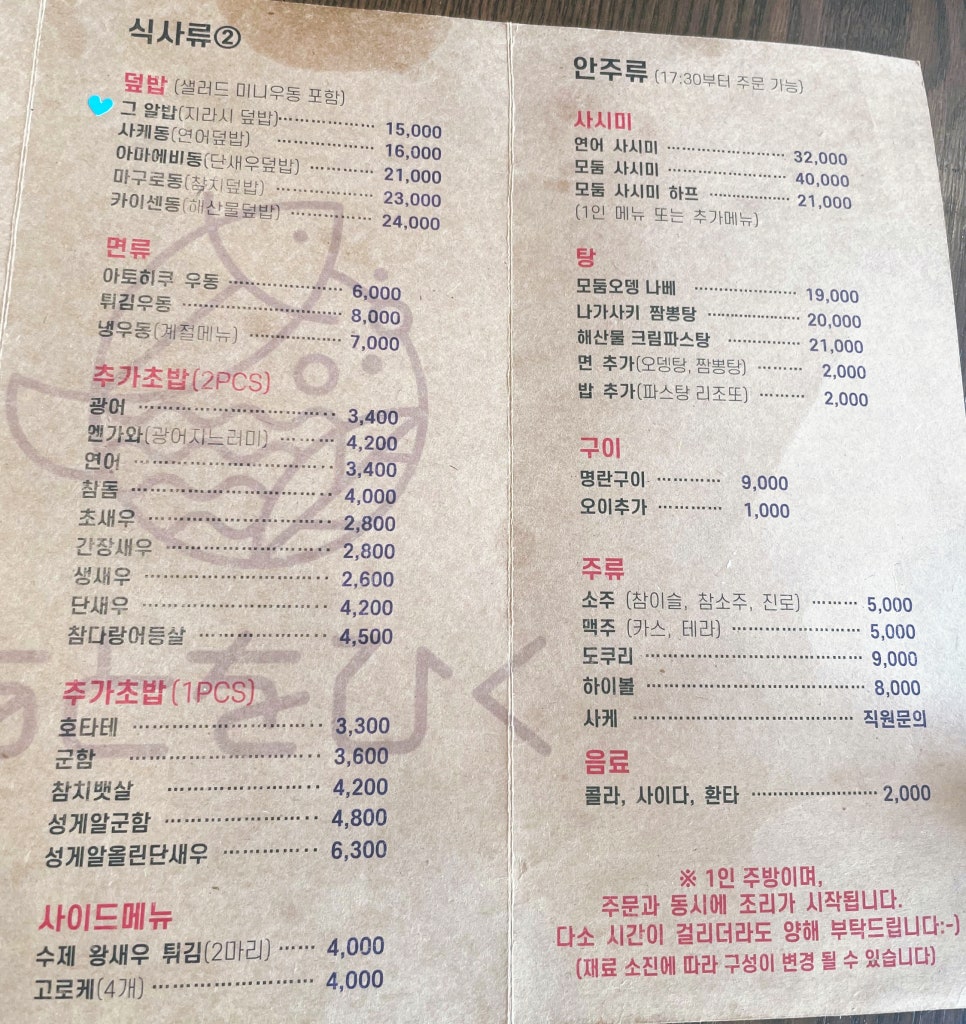 식사류②
덮밥 (샐러드 미니우동 포함)
그 알밥(지라시 덮밥) 15,000
사케동(연어덮밥) 16,000
아마에비동(단새우덮밥) 21,000
마구로동(참치덮밥) 23,000
카이센동(해산물덮밥) 24,000
면류
아토히쿠 우동 6,000
튀김우동 8,000
냉우동(계절메뉴) 7,000
추가초밥(2PCS)
광어 3,400
엔가와(광어지느러미) 4,200
연어 3,400
참돔 4,000
초새우 2,800
간장새우 2,800
생새우 2,600
단새우 4,200
참다랑어등살 4,500
あとをひく
추가초밥(1PCS)
호타테 3,300
군함 3,600
참치뱃살 4,200
성게알군함 4,800
성게알올린단새우 6,300
사이드메뉴
수제 왕새우 튀김(2마리) 4,000
고로케(4개) 4,000
안주류 (17:30부터 주문 가능)
사시미
연어 사시미 32,000
모둠 사시미 40,000
모둠 사시미 하프 21,000
(1인 메뉴 또는 추가메뉴)
탕
모둠오뎅 나베 19,000
나가사키 짬뽕탕 20,000
해산물 크림파스탕 21,000
면 추가(오뎅탕, 짬뽕탕) 2,000
밥 추가(파스탕 리조또) 2,000
구이
명란구이 9,000
오이추가 1,000
주류
소주 (참이슬, 참소주, 진로) 5,000
맥주 (카스, 테라) 5,000
도쿠리 9,000
하이볼 8,000
사케 직원문의
음료
콜라, 사이다, 환타 2,000
※ 1인 주방이며,
주문과 동시에 조리가 시작됩니다.
다소 시간이 걸리더라도 양해 부탁드립니다:-)
(재료 소진에 따라 구성이 변경 될 수 있습니다)